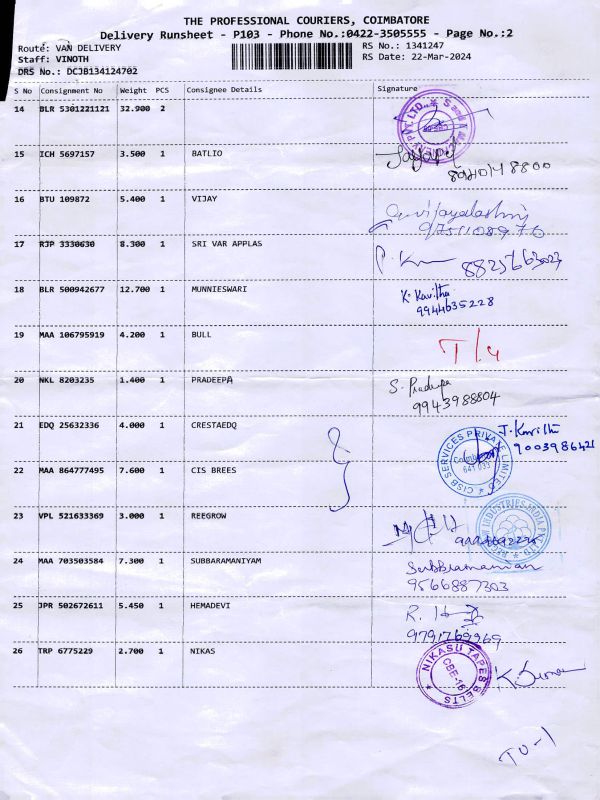 THE PROFESSIONAL COURIERS, COIMBATORE
Delivery Runsheet - P103 - Phone No.:0422-3505555 - Page No.:2
Route: VAN DELIVERY RS No.: 1341247
Staff: VINOTH RS Date: 22-Mar-2024
DRS No.: DCJB134124702
S No Consignment No Weight PCS Consignee Details Signature
14 BLR 5301221121 32.900 2
15 ICH 5697157 3.500 1 BATLIO
16 BTU 109872 5.400 1 VIJAY
17 RJP 3330630 8.300 1 SRI VAR APPLAS
18 BLR 500942677 12.700 1 MUNNIESWARI
K. Kavitha
9944635228
19 MAA 106795919 4.200 1 BULL
20 NKL 8203235 1.400 1 PRADEEPA
S. Pradeepa
9943988804
21 EDQ 25632336 4.000 1 CRESTAEDQ
J. Kavitha
9003986421
22 MAA 864777495 7.600 1 CIS BREES
CISB SERVICES PRIVATE LIMITED
23 VPL 521633369 3.000 1 REEGROW
24 MAA 703503584 7.300 1 SUBBARAMANIYAM
Subbramanian
9566887303
25 JPR 502672611 5.450 1 HEMADEVI
9791769969
26 TRP 6775229 2.700 1 NIKAS
NIKASU TAPES BELTS
CBE-16